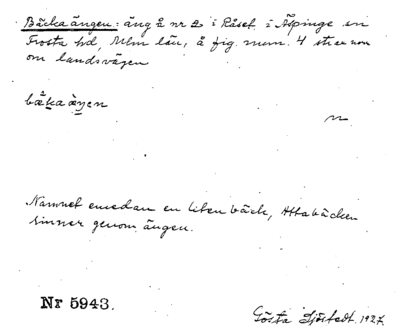 Bäckaängen: äng å nr 2 i Råset i Äspinge sn
Frosta hd, Mlm län, å fig. num. 4 strax nom
om landsvägen
bækaæŋen
n
Namnet emedan en liten bäck, Attabäcken
rinner genom ängen.
Nr 5943.
Gösta Sjöstedt. 1927